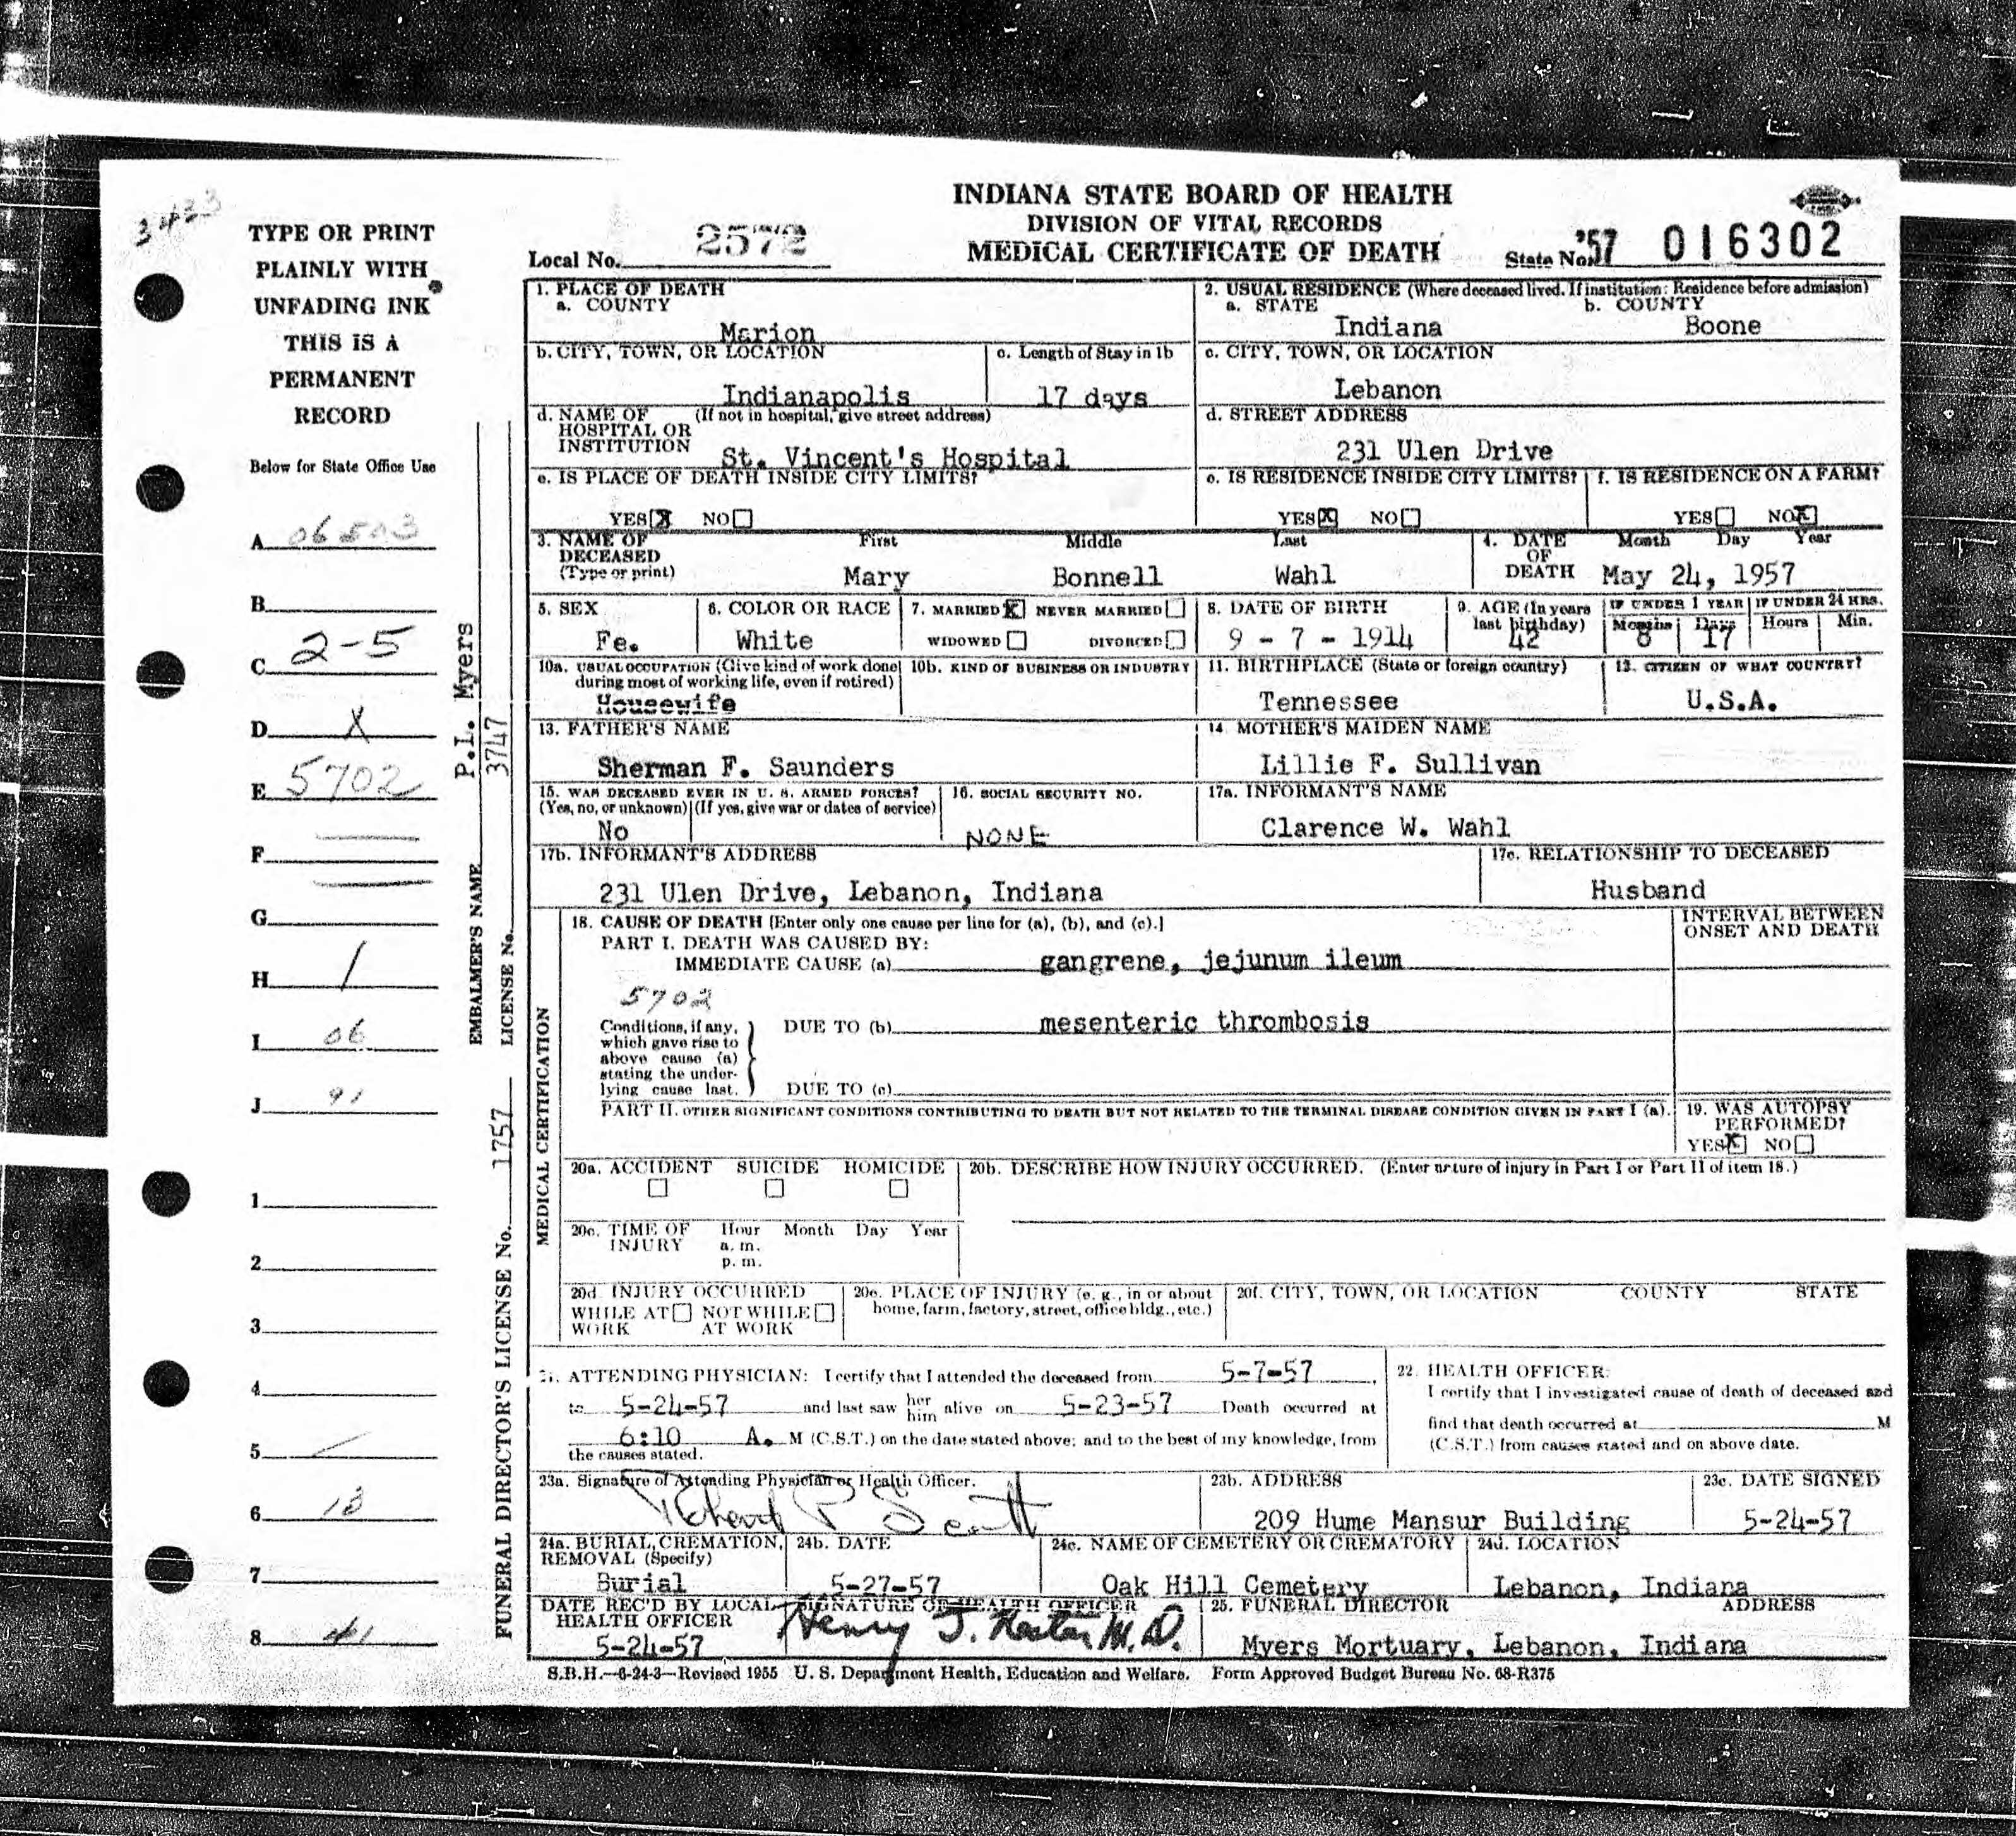 3423
INDIANA STATE BOARD OF HEALTH
DIVISION OF VITAL RECORDS
MEDICAL CERTIFICATE OF DEATH
Local No. 2572
State No. '57 016302
TYPE OR PRINT
PLAINLY WITH
UNFADING INK
THIS IS A
PERMANENT
RECORD
Below for State Office Use
A 06503
B
C 2-5
D X
E 5702
F
G
H 1
I 06
J 91
1
2
3
4
5
6 13
7
8 41
EMBALMER'S NAME P.L. Myers
LICENSE No. 3747
FUNERAL DIRECTOR'S LICENSE No. 1757
1. PLACE OF DEATH
a. COUNTY
Marion
2. USUAL RESIDENCE (Where deceased lived. If institution: Residence before admission)
a. STATE b. COUNTY
Indiana Boone
b. CITY, TOWN, OR LOCATION
Indianapolis
c. Length of Stay in 1b
17 days
c. CITY, TOWN, OR LOCATION
Lebanon
d. NAME OF (If not in hospital, give street address)
HOSPITAL OR
INSTITUTION
St. Vincent's Hospital
d. STREET ADDRESS
231 Ulen Drive
e. IS PLACE OF DEATH INSIDE CITY LIMITS?
YES X NO
e. IS RESIDENCE INSIDE CITY LIMITS?
YES X NO
f. IS RESIDENCE ON A FARM?
YES NO X
3. NAME OF First Middle Last
DECEASED
(Type or print) Mary Bonnell Wahl
4. DATE Month Day Year
OF
DEATH May 24, 1957
5. SEX
Fe.
6. COLOR OR RACE
White
7. MARRIED X NEVER MARRIED
WIDOWED DIVORCED
8. DATE OF BIRTH
9 - 7 - 1914
9. AGE (In years
last birthday)
42
IF UNDER 1 YEAR
Months Days
8 17
IF UNDER 24 HRS.
Hours Min.
10a. USUAL OCCUPATION (Give kind of work done
during most of working life, even if retired)
Housewife
10b. KIND OF BUSINESS OR INDUSTRY
11. BIRTHPLACE (State or foreign country)
Tennessee
12. CITIZEN OF WHAT COUNTRY?
U.S.A.
13. FATHER'S NAME
Sherman F. Saunders
14. MOTHER'S MAIDEN NAME
Lillie F. Sullivan
15. WAS DECEASED EVER IN U. S. ARMED FORCES?
(Yes, no, or unknown) (If yes, give war or dates of service)
No
16. SOCIAL SECURITY NO.
NONE
17a. INFORMANT'S NAME
Clarence W. Wahl
17b. INFORMANT'S ADDRESS
231 Ulen Drive, Lebanon, Indiana
17c. RELATIONSHIP TO DECEASED
Husband
MEDICAL CERTIFICATION
18. CAUSE OF DEATH [Enter only one cause per line for (a), (b), and (c).]
INTERVAL BETWEEN
ONSET AND DEATH
PART I. DEATH WAS CAUSED BY:
IMMEDIATE CAUSE (a) gangrene, jejunum ileum
5702
Conditions, if any,
which gave rise to
above cause (a)
stating the under-
lying cause last.
DUE TO (b) mesenteric thrombosis
DUE TO (c)
PART II. OTHER SIGNIFICANT CONDITIONS CONTRIBUTING TO DEATH BUT NOT RELATED TO THE TERMINAL DISEASE CONDITION GIVEN IN PART I (a).
19. WAS AUTOPSY
PERFORMED?
YES X NO
20a. ACCIDENT SUICIDE HOMICIDE
20b. DESCRIBE HOW INJURY OCCURRED. (Enter nature of injury in Part I or Part II of item 18.)
20c. TIME OF Hour Month Day Year
INJURY a. m.
p. m.
20d. INJURY OCCURRED
WHILE AT NOT WHILE
WORK AT WORK
20e. PLACE OF INJURY (e. g., in or about
home, farm, factory, street, office bldg., etc.)
20f. CITY, TOWN, OR LOCATION COUNTY STATE
21. ATTENDING PHYSICIAN: I certify that I attended the deceased from 5-7-57,
to 5-24-57 and last saw her him alive on 5-23-57 Death occurred at
6:10 A. M (C.S.T.) on the date stated above; and to the best of my knowledge, from
the causes stated.
22. HEALTH OFFICER:
I certify that I investigated cause of death of deceased and
find that death occurred at M
(C.S.T.) from causes stated and on above date.
23a. Signature of Attending Physician or Health Officer.
Robert P Scott
23b. ADDRESS
209 Hume Mansur Building
23c. DATE SIGNED
5-24-57
24a. BURIAL, CREMATION,
REMOVAL (Specify)
Burial
24b. DATE
5-27-57
24c. NAME OF CEMETERY OR CREMATORY
Oak Hill Cemetery
24d. LOCATION
Lebanon, Indiana
DATE REC'D BY LOCAL
HEALTH OFFICER
5-24-57
SIGNATURE OF HEALTH OFFICER
Henry J. Nester M.D.
25. FUNERAL DIRECTOR ADDRESS
Myers Mortuary, Lebanon, Indiana
S.B.H.—6-24-3—Revised 1955 U. S. Department Health, Education and Welfare. Form Approved Budget Bureau No. 68-R375